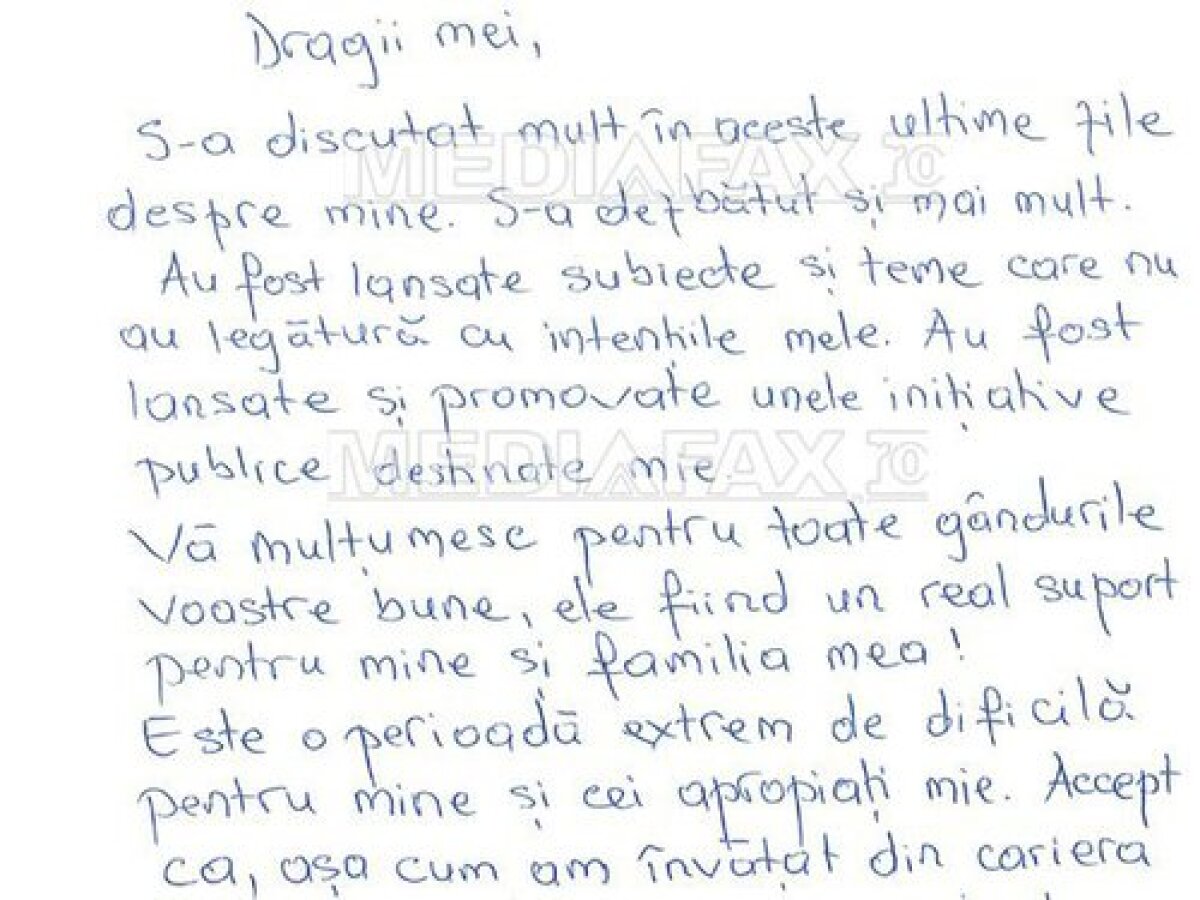 Dragii mei,
S-a discutat mult în aceste ultime zile
despre mine. S-a dezbătut și mai mult.
Au fost lansate subiecte și teme care nu
au legătură cu intențiile mele. Au fost
lansate și promovate unele inițiative
publice destinate mie.
Vă mulțumesc pentru toate gândurile
voastre bune, ele fiind un real suport
pentru mine și familia mea!
Este o perioadă extrem de dificilă
pentru mine și cei apropiați mie. Accept
ca, așa cum am învățat din cariera
MEDIAFAX.ro
MEDIAFAX.ro